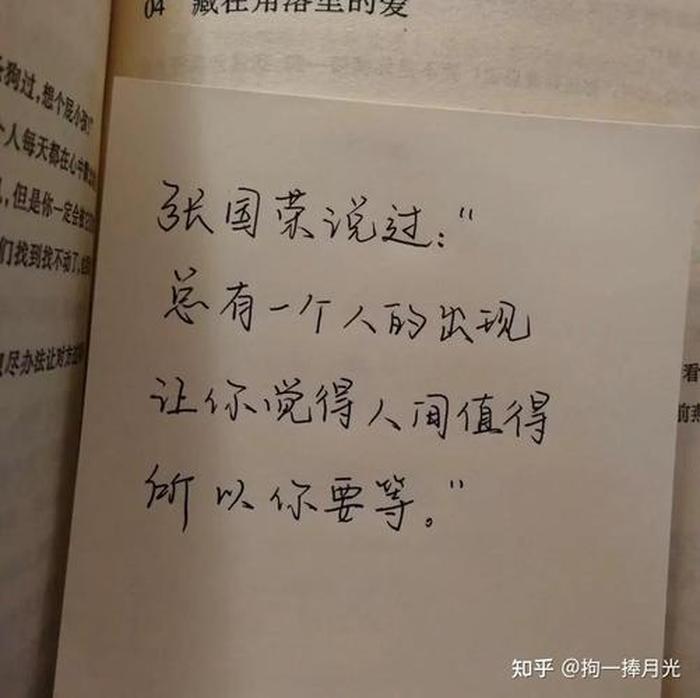 04 藏在角落里的爱
狗过,想个屁小孩
个人每天都在心中
,但是你一定会
们找到找不动了,
尽办法让对方
张国荣说过:“
总有一个人的出现
让你觉得人间值得
所以你要等。”
看
前
知乎 @掬一捧月光